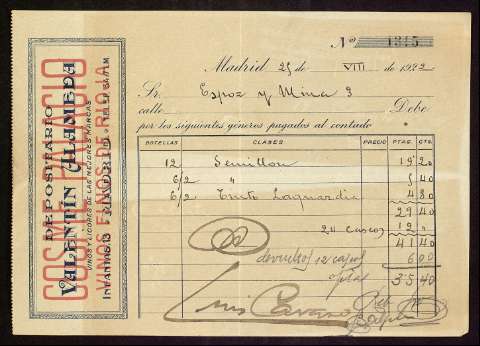 Nº 1315
Madrid 25 de VIII de 1922
Sr. Espoz y Mina 3
calle Debe
por los siguientes géneros pagados al contado
BOTELLAS CLASES PRECIO PTAS. CTS.
12 Semillon 19 20
6/2 " 5 40
6/2 Tinto Laguardia 4 80
29 40
24 cascos 12 "
41 40
12 6 00
35 40
Luis
DEPOSITARIO
VALENTÍN ALAMEDA
VINOS Y LICORES DE LAS MEJORES MARCAS
COSME PALACIO
VINOS FINOS DE RIOJA